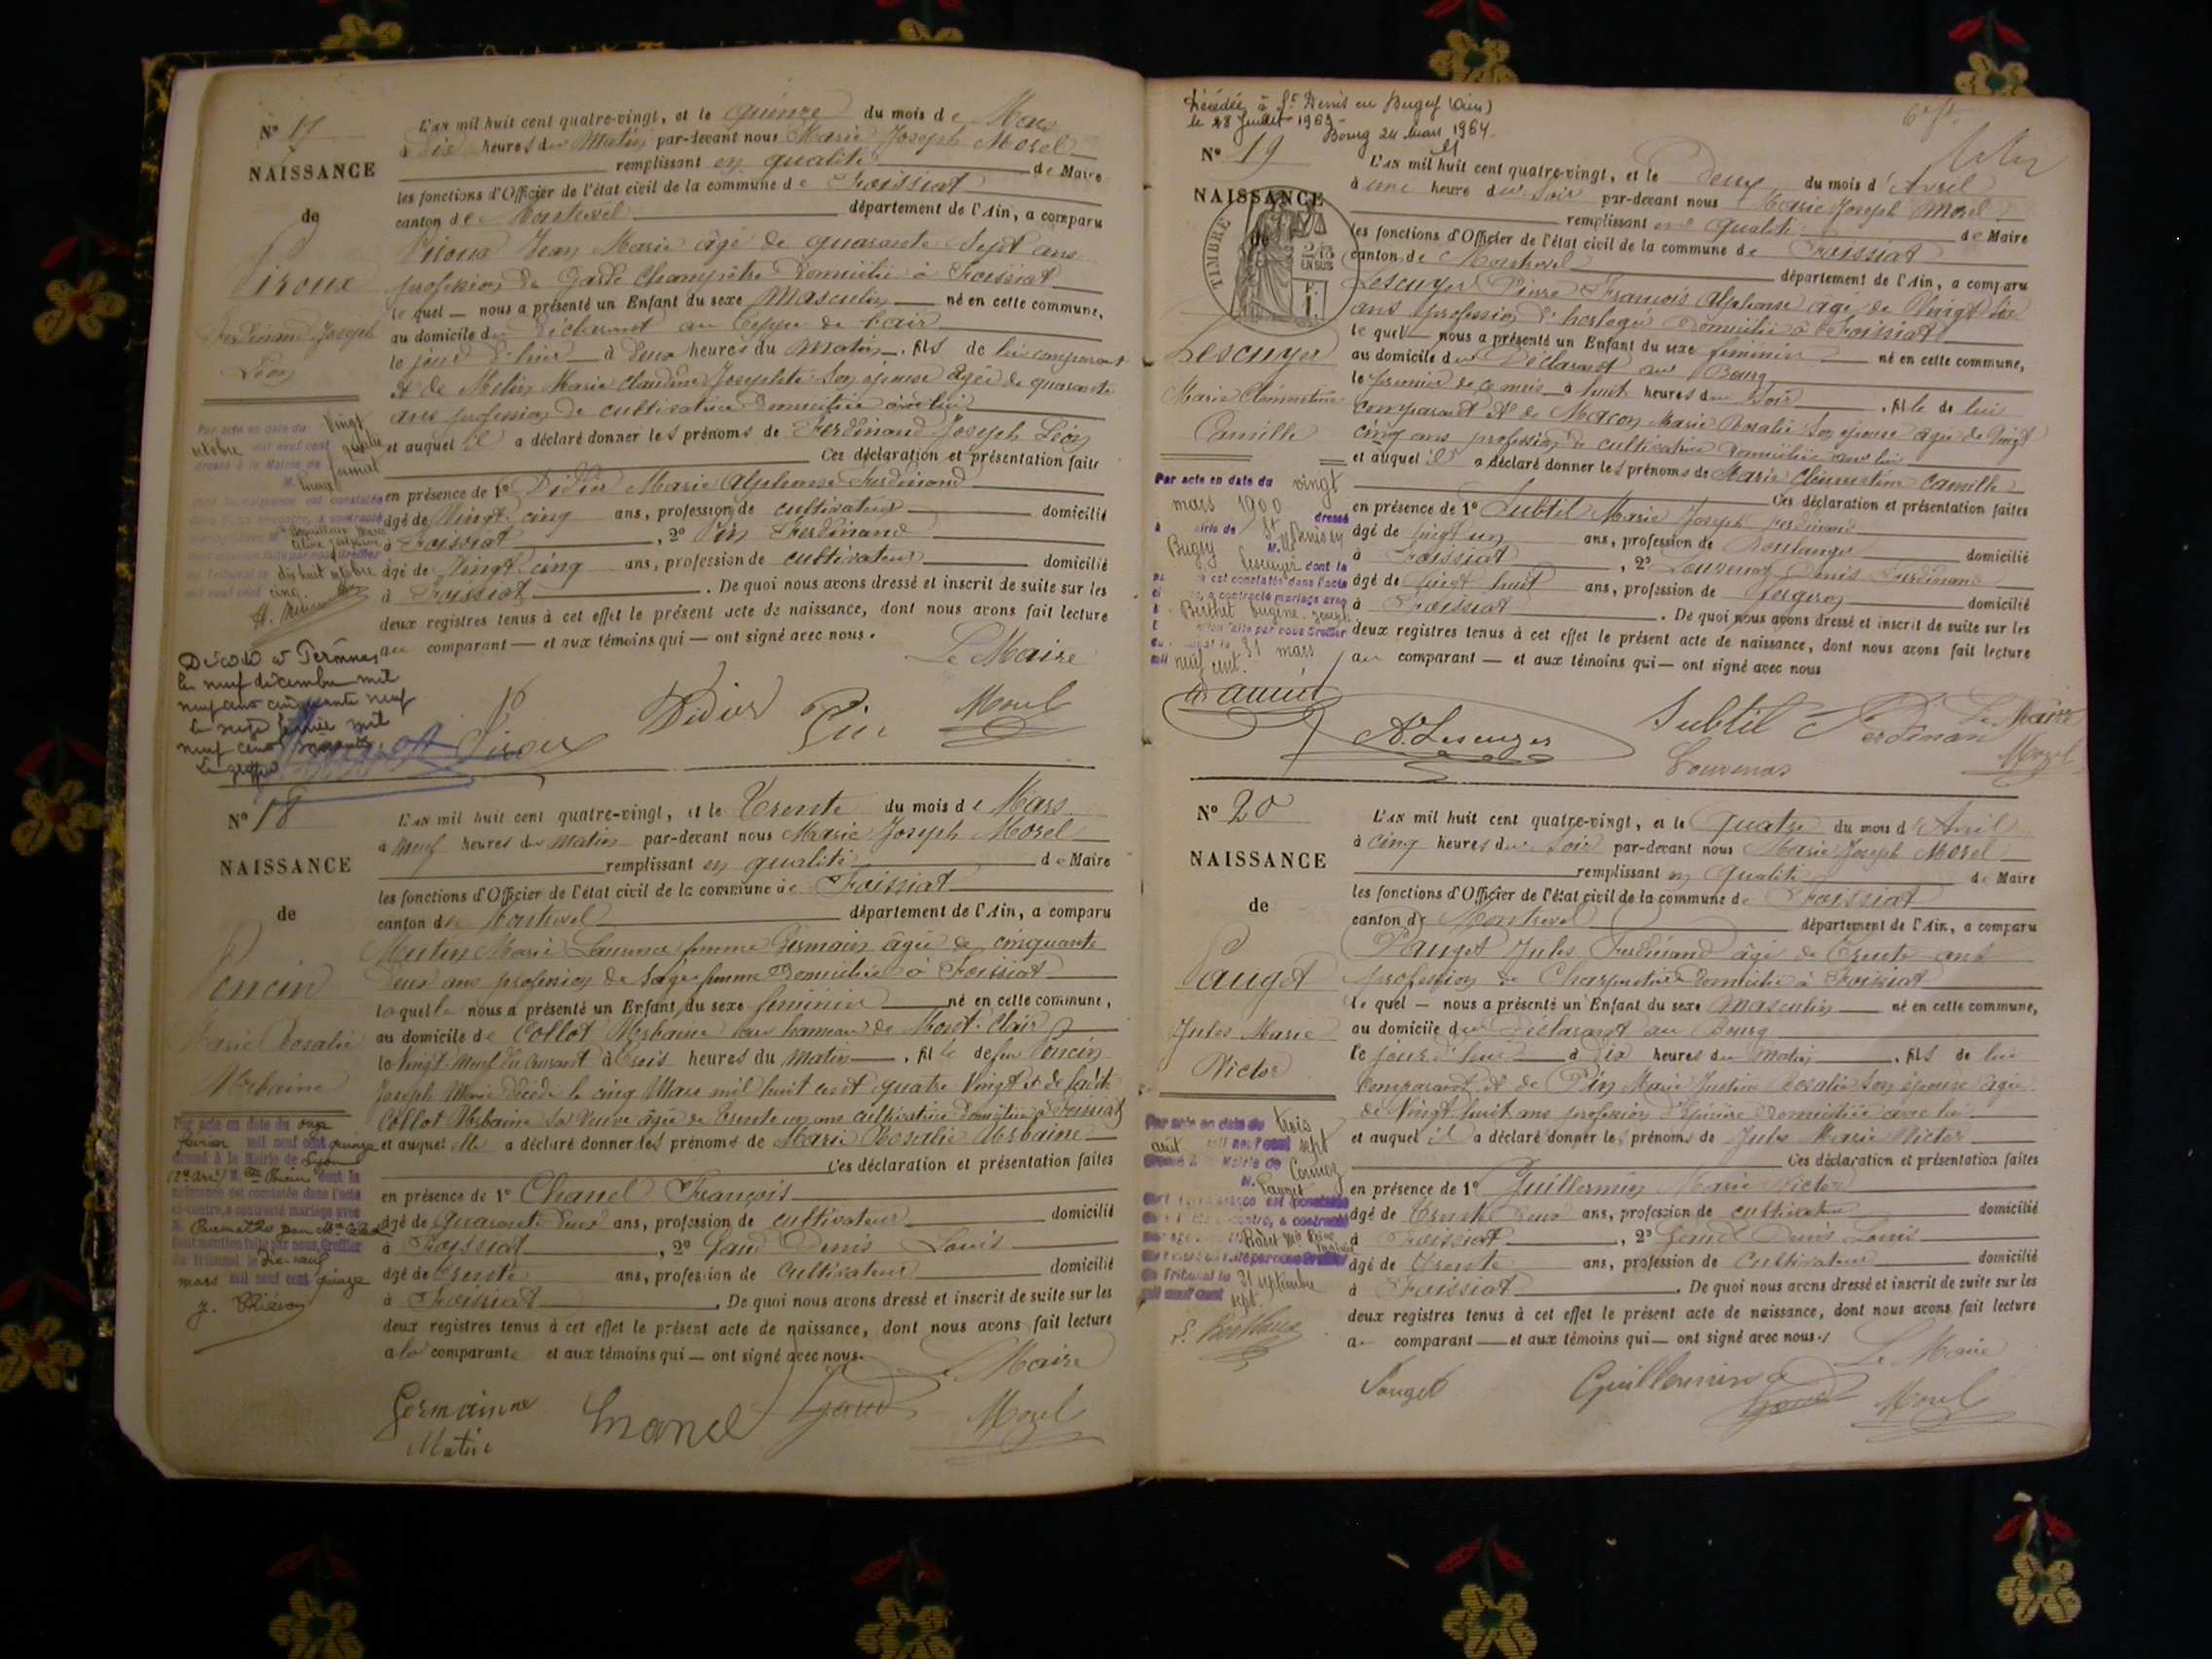 N° 17
NAISSANCE
de
Piroux
Ferdinand Joseph
Léon
Par acte en date du vingt
octobre mil neuf cent
dressé à la Mairie de
dix huit octobre
Décédé à Péronnas
le neuf décembre mil
neuf cent cinquante neuf
le seize mil
neuf cent soixante
L'an mil huit cent quatre-vingt, et le quinze du mois de Mars
à dix heures du Matin par-devant nous Marie Joseph Morel
remplissant en qualité de Maire
les fonctions d'Officier de l'état civil de la commune de Foissiat
canton de Montrevel département de l'Ain, a comparu
Piroux Jean Marie âgé de quarante sept ans
profession de Garde Champêtre domicilié à Foissiat
le quel nous a présenté un Enfant du sexe Masculin né en cette commune,
au domicile du Déclarant au
le jour d'hier à deux heures du Matin, fils de lui comparant
et de Marie Claudine Josephte son épouse âgée de quarante
ans profession de cultivatrice domiciliée avec lui
et auquel il a déclaré donner les prénoms de Ferdinand Joseph Léon
Ces déclaration et présentation faites
en présence de 1° Didier Marie Alphonse Ferdinand
âgé de Vingt cinq ans, profession de cultivateur domicilié
à Foissiat, 2° Pin Ferdinand
âgé de Vingt cinq ans, profession de cultivateur domicilié
à Foissiat. De quoi nous avons dressé et inscrit de suite sur les
deux registres tenus à cet effet le présent acte de naissance, dont nous avons fait lecture
au comparant — et aux témoins qui — ont signé avec nous.
Le Maire
Piroux Didier Pin Morel
N° 18
NAISSANCE
de
Poncin
Marie Rosalie
Urbaine
Par acte en date du
février mil neuf cent quinze
dressé à la Mairie de Lyon
dont la
naissance est constatée dans l'acte
ci-contre, a contracté mariage avec
Dont mention faite par nous, Greffier
du Tribunal le dix-neuf
mars mil neuf cent quinze
L'an mil huit cent quatre-vingt, et le Trente du mois de Mars
à Neuf heures du Matin par-devant nous Marie Joseph Morel
remplissant en qualité de Maire
les fonctions d'Officier de l'état civil de la commune de Foissiat
canton de Montrevel département de l'Ain, a comparu
Mutin Marie Laurence femme Germain âgée de cinquante
deux ans profession de Sage femme domiciliée à Foissiat
laquelle nous a présenté un Enfant du sexe féminin né en cette commune,
au domicile de Collot Urbaine au hameau de Mont-Clair
le vingt Neuf du courant à trois heures du Matin, fille de feu Poncin
Joseph Marie décédé le cinq Mars mil huit cent quatre Vingt et de
Collot Urbaine sa veuve âgée de trente un ans cultivatrice domiciliée à Foissiat
et auquel elle a déclaré donner les prénoms de Marie Rosalie Urbaine
Ces déclaration et présentation faites
en présence de 1° Chanel François
âgé de Quarante deux ans, profession de cultivateur domicilié
à Foissiat, 2° Gaud Denis Louis
âgé de trente ans, profession de Cultivateur domicilié
à Foissiat. De quoi nous avons dressé et inscrit de suite sur les
deux registres tenus à cet effet le présent acte de naissance, dont nous avons fait lecture
à la comparante et aux témoins qui — ont signé avec nous.
Le Maire
Germain Chanel Gaud Morel
Décédée à St Denis en Bugey (Ain)
le 28 Juillet 1963
Bourg 24 mars 1964
N° 19
NAISSANCE
de
TIMBRE
Lescuyer
Marie Clémentine
Camille
Par acte en date du vingt
mars 1900 dressé
à mairie de St Denis en
Bugey M. Lescuyer dont la
est constatée dans l'acte
a contracté mariage avec
Berthet Eugène Joseph
faite par nous Greffier
31 mars
mil neuf cent.
L'an mil huit cent quatre-vingt, et le Deux du mois d'Avril
à une heure du Soir par-devant nous Marie Joseph Morel
remplissant en qualité de Maire
les fonctions d'Officier de l'état civil de la commune de Foissiat
canton de Montrevel département de l'Ain, a comparu
Lescuyer Pierre François Alphonse âgé de Vingt six
ans profession d'horloger domicilié à Foissiat
le quel nous a présenté un Enfant du sexe féminin né en cette commune,
au domicile du Déclarant au Bourg
le premier de ce mois à huit heures du soir, fille de lui
comparant et de Macon Marie Rosalie son épouse âgée de Vingt
cinq ans profession de cultivatrice domiciliée avec lui
et auquel il a déclaré donner les prénoms de Marie Clémentine Camille
Ces déclaration et présentation faites
en présence de 1° Subtil Marie Joseph Ferdinand
âgé de vingt un ans, profession de Boulanger domicilié
à Foissiat, 2° Louvenas Denis Ferdinand
âgé de Vingt huit ans, profession de forgeron domicilié
à Foissiat. De quoi nous avons dressé et inscrit de suite sur les
deux registres tenus à cet effet le présent acte de naissance, dont nous avons fait lecture
au comparant — et aux témoins qui — ont signé avec nous
A. Lescuyer Subtil Ferdinan Le Maire
Louvenas Morel
N° 20
NAISSANCE
de
Pauget
Jules Marie
Victor
Par acte en date du trois
août mil neuf cent sept
M. Pauget
du Tribunal le 21 septembre
mil neuf cent sept.
L'an mil huit cent quatre-vingt, et le Quatre du mois d'Avril
à Cinq heures du Soir par-devant nous Marie Joseph Morel
remplissant en qualité de Maire
les fonctions d'Officier de l'état civil de la commune de Foissiat
canton de Montrevel département de l'Ain, a comparu
Pauget Jules Ferdinand âgé de Trente ans
profession de Charpentier domicilié à Foissiat
le quel — nous a présenté un Enfant du sexe Masculin né en cette commune,
au domicile du Déclarant au Bourg
le jour d'hui à Dix heures du Matin, fils de lui
comparant et de Pin Marie Justine Rosalie son épouse âgée
de Vingt huit ans profession d'Epicière domiciliée avec lui
et auquel il a déclaré donner les prénoms de Jules Marie Victor
Ces déclaration et présentation faites
en présence de 1° Guillermin Marie Victor
âgé de Trente Deux ans, profession de cultivateur domicilié
à Foissiat, 2° Gaud Denis Louis
âgé de Trente ans, profession de Cultivateur domicilié
à Foissiat. De quoi nous avons dressé et inscrit de suite sur les
deux registres tenus à cet effet le présent acte de naissance, dont nous avons fait lecture
au comparant — et aux témoins qui — ont signé avec nous.
Le Maire
Pauget Guillermin Gaud Morel